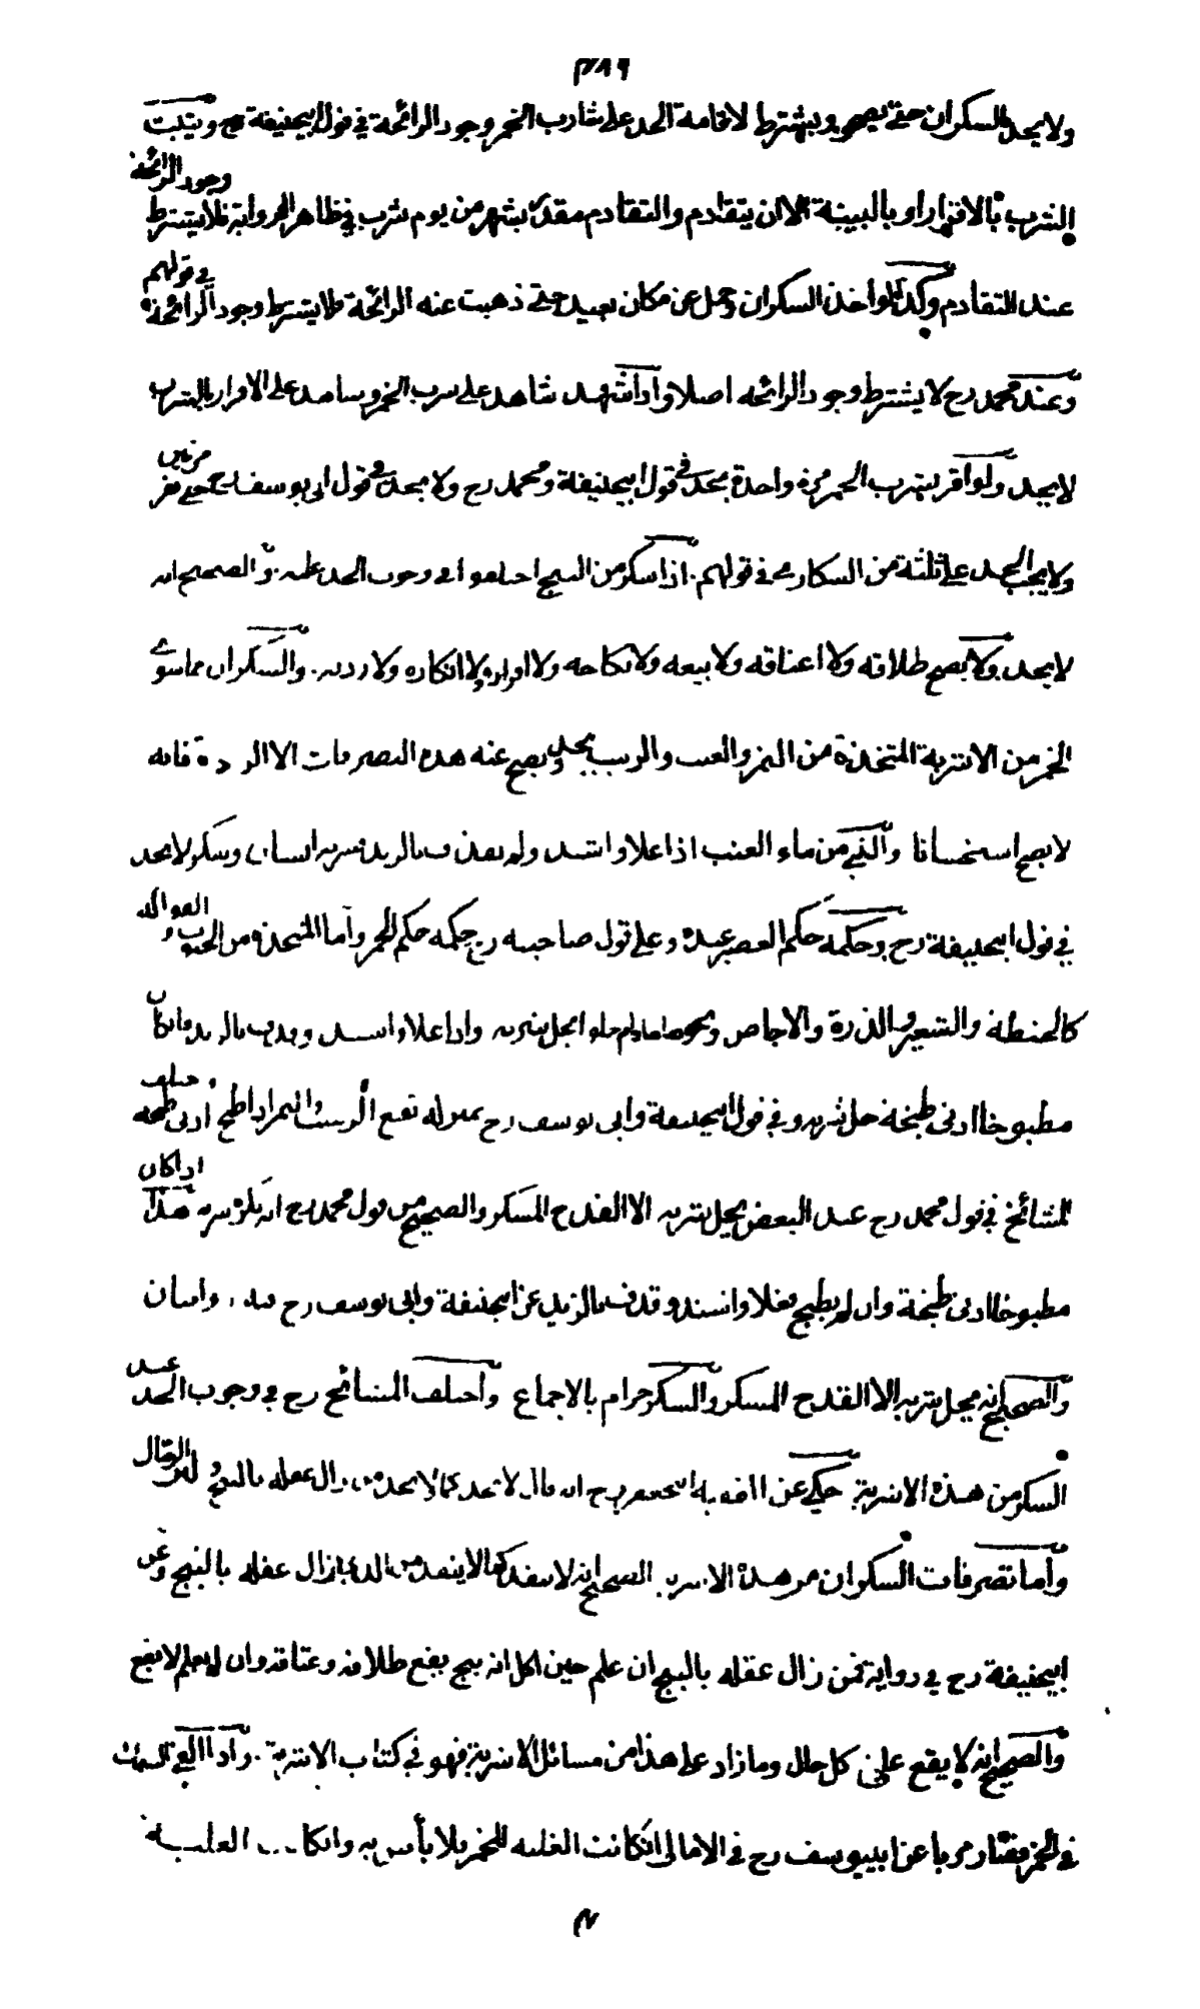 ٣٨٩
ولا يحد السكران حتى يصحو ويشترط لاقامة الحد على شارب الخمر وجود الرائحة في قول ابيحنيفة رح ويثبت
وجود الرائحة
الشرب بالاقرار او بالبينة الا ان يتقادم والتقادم مقدر بشهر من يوم شرب في ظاهر الرواية فلا يشترط
في قولهم
عند التقادم وكذا لو اخذ السكران وحمل عن مكان بعيد حتى ذهبت عنه الرائحة لا يشترط وجود الرائحة
وعند محمد رح لا يشترط وجود الرائحه اصلا واذا شهد شاهد على شرب الخمر وشاهد على الاقرار بالشرب
مرتين
لا يحد ولو اقر بشرب الخمر مرة واحدة يحد في قول ابيحنيفة ومحمد رح ولا يحد في قول ابي يوسف رح حتى يقر
ولا يجب الحد على ثلثة من السكارى في قولهم. اذا سكر من البنج اختلفوا في وجوب الحد عليه. والصحيح انه
لا يحد ولا يصح طلاقه ولا اعتاقه ولا بيعه ولا نكاحه ولا اقراره ولا انكاره ولا ردته. والسكران مما سوى
الخمر من الاشربة المتخذة من التمر والعنب والزبيب يحد ويصح عنه هذه التصرفات الا الردة فانه
لا يصح استحسانا والنيء من ماء العنب اذا غلا واشتد ولم يقذف بالزبد شربه انسان وسكر لا يحد
الفواكه
في قول ابيحنيفة رح وحكمه حكم العصير عنده وعلى قول صاحبيه رح حكمه حكم الخمر واما المتخذة من الحبوب و
كالحنطة والشعير والذرة والاجاص ونحوها مادام حلوا يحل شربه واذا غلا واشتد وقذف بالزبد فان كان
اختلف
مطبوخا ادنى طبخة حل شربه في قول ابيحنيفة وابي يوسف رح بمنزلة نقيع الزبيب والتمر اذا طبخ ادنى طبخة و
اذا كان
المشائخ في قول محمد رح عند البعض يحل شربه الا القدح المسكر والصحيح من قول محمد رح انه يكره شربه هذا
مطبوخا ادنى طبخة وان لم يطبخ فغلا واشتد وقذف بالزبد عن ابيحنيفة وابي يوسف رح فيه روايتان
عند
والصحيح انه يحل شربه الا القدح المسكر والسكر حرام بالاجماع واختلف المشائخ رح في وجوب الحد
السكر من هذه الاشربة حكي عن الفقيه ابيجعفر رح انه قال لا يحد كما لا يحد من زال عقله بالبنج
واما تصرفات السكران من هذه الاشربة الصحيح انه لا ينفذ كما لا ينفذ من الذي زال عقله بالبنج وعن
ابيحنيفة رح في رواية فمن زال عقله بالبنج ان علم حين اكل انه بنج يقع طلاقه وعتاقه وان لم يعلم لا يقع
والصحيح انه لا يقع على كل حال وما زاد على هذا من مسائل الاشربة فهو في كتاب الاشربة. واذا القي السمك
في الخمر فصار مريا عن ابييوسف رح في الامالي ان كانت الغلبه للخمر فلا بأس به وان كا... الغلبة